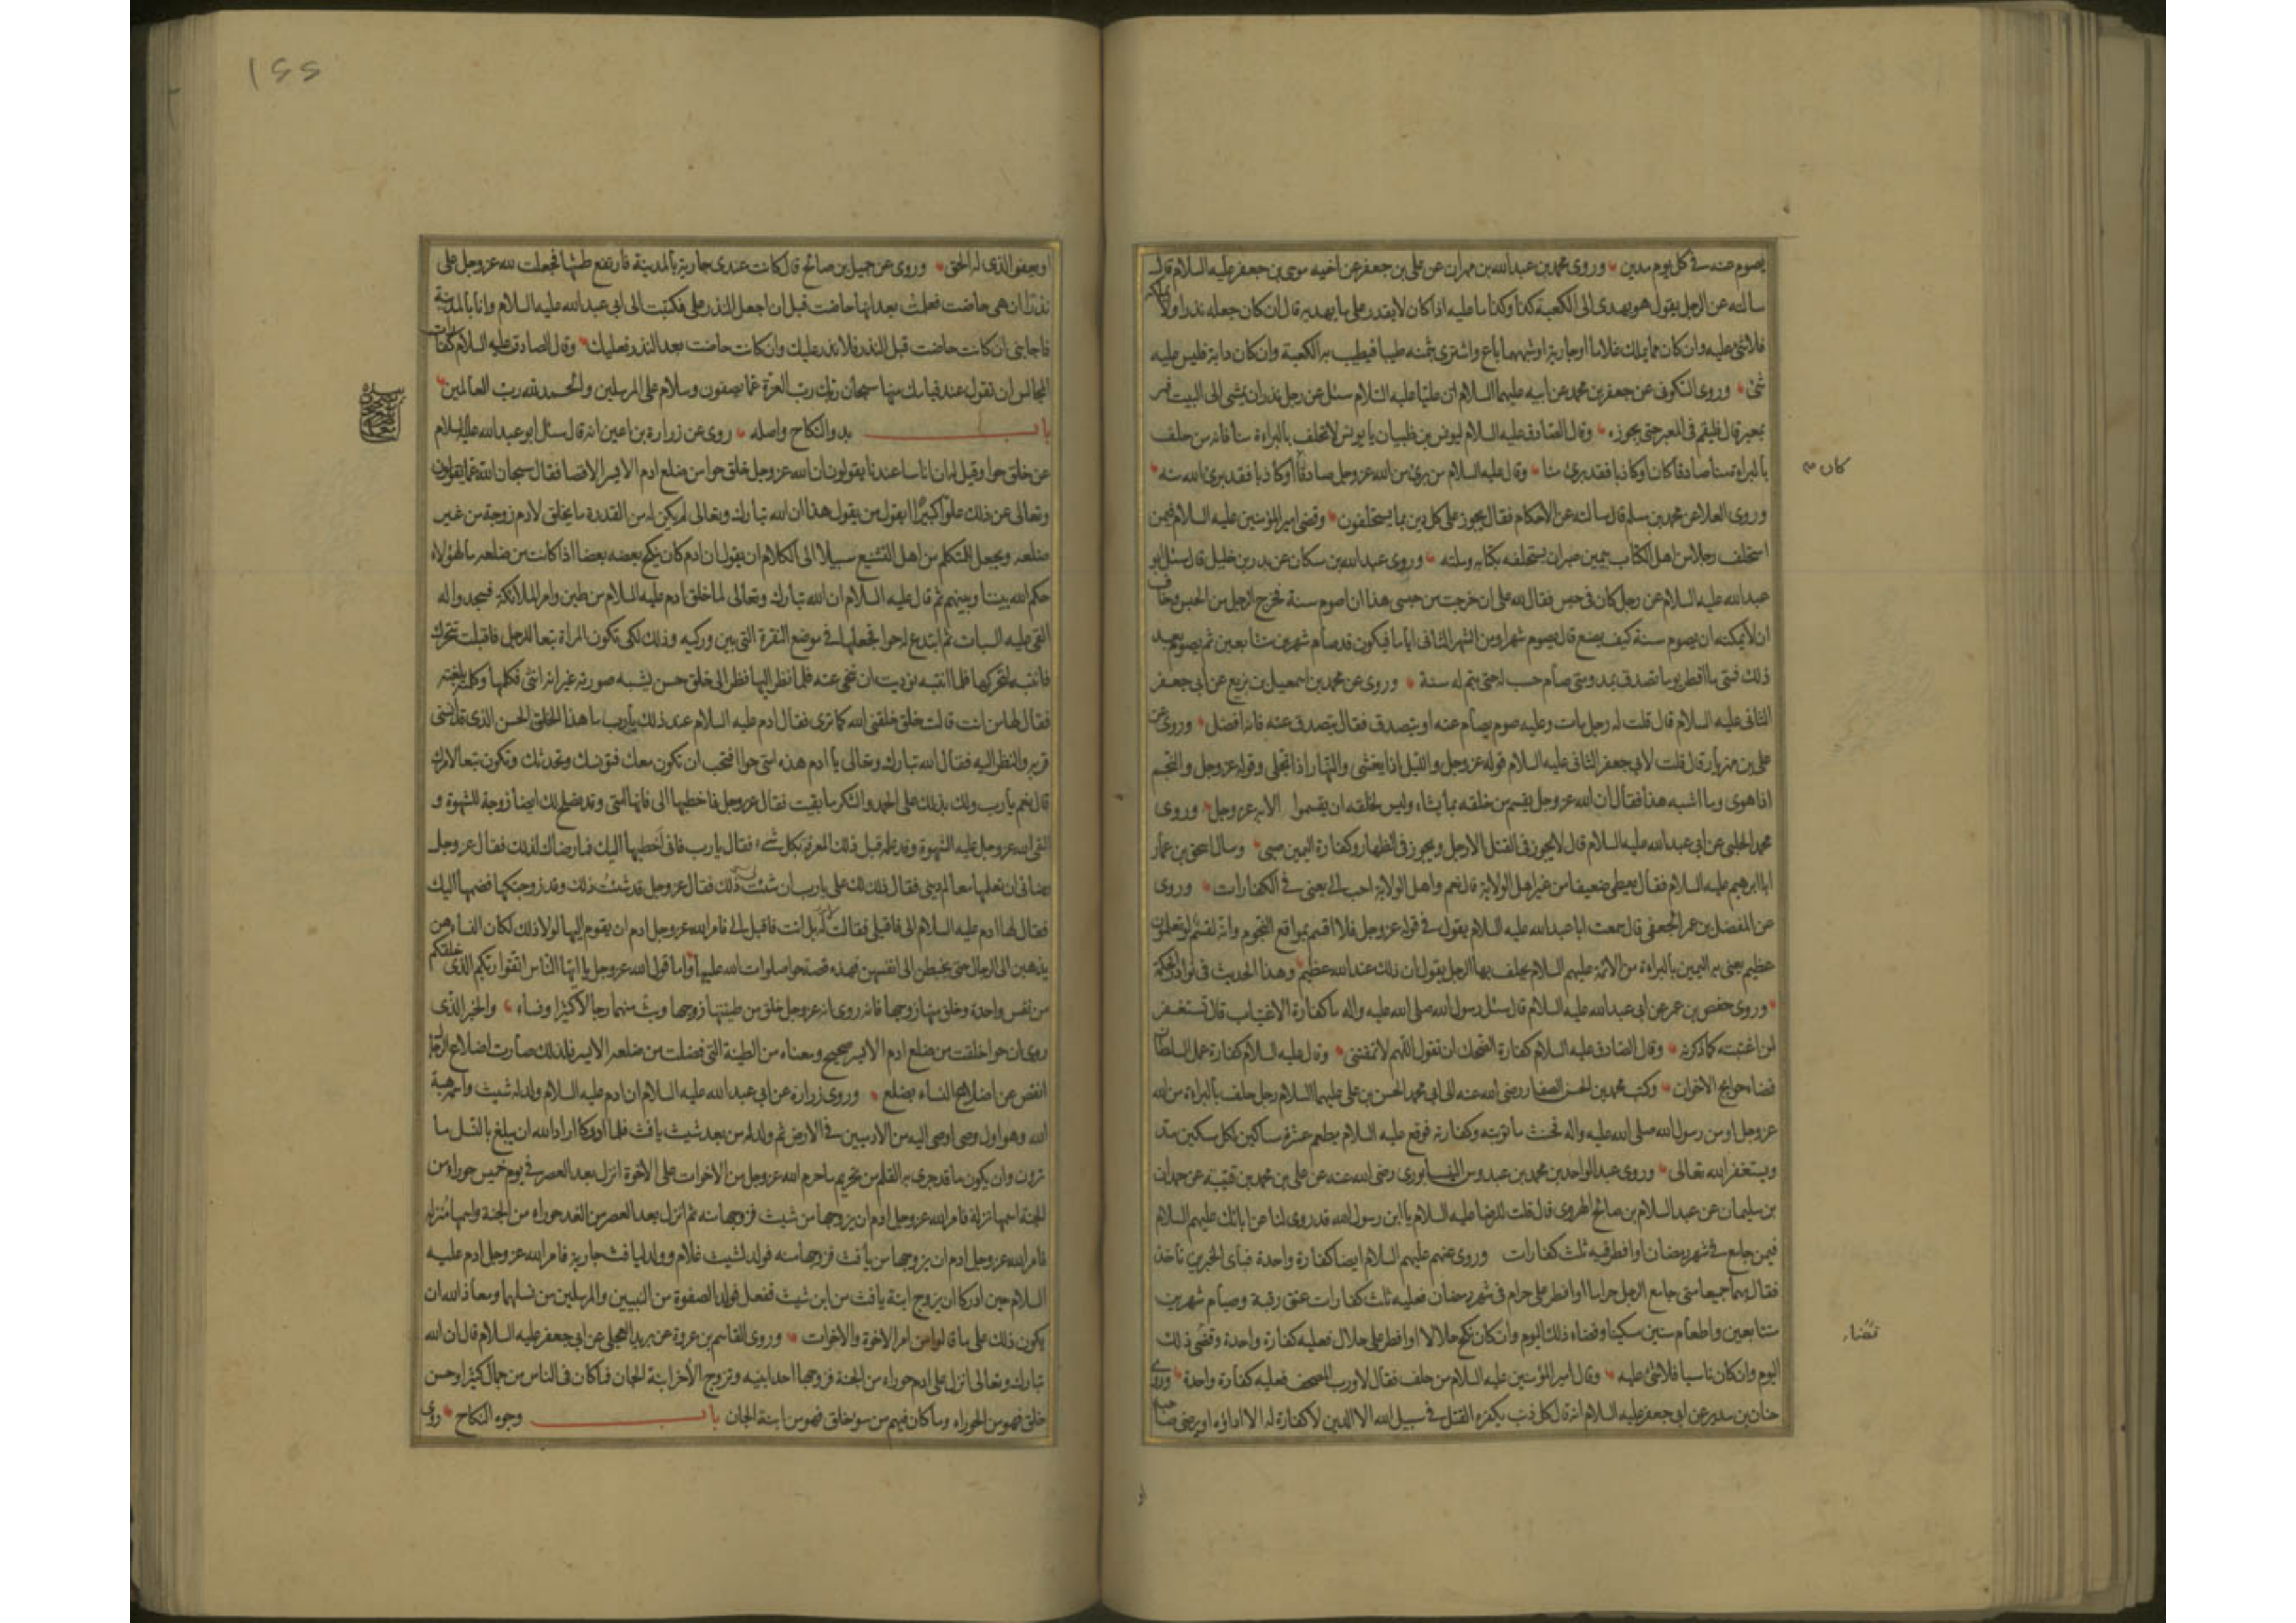 يصوم عنه في كل يوم مدين وروى محمد بن عبدالله بن مهران عن علي بن جعفر عن اخيه موسى بن جعفر عليه السلام قال
سالته عن الرجل يقول هو يهدى الى الكعبة كذا وكذا ما عليه اذا كان لا يقدر على ما يهديه قال ان كان جعله نذرا ولا يملكه
فلا شئ عليه وان كان مما يملك غلاما او جارية او شبههما باع واشترى بثمنه طيبا فيطيب به الكعبة وان كان دابة فليس عليه
شئ وروى السكوني عن جعفر بن محمد عن ابيه عليهما السلام ان عليا عليه السلام سئل عن رجل نذر ان يمشى الى البيت فمر
بمعبر قال فليقم في المعبر حتى يجوزه وقال الصادق عليه السلام ليونس بن ظبيان يا يونس لا تحلف بالبراءة منا فانه من حلف
بالبراءة منا صادقا كان او كاذبا فقد برئ منا وقال عليه السلام من برئ من الله عز وجل صادقا او كاذبا فقد برئ الله منه
كان
وروى العلا عن محمد بن مسلم قال سالته عن الاحكام فقال يجوز على كل دين بما يستحلفون وقضى امير المؤمنين عليه السلام فيمن
استحلف رجلا من اهل الكتاب بيمين صبر ان يستحلفه بكتابه وملته وروى عبدالله بن مسكان عن بدر بن خليل قال سئل ابو
عبدالله عليه السلام عن رجل كان في حبس فقال لله على ان خرجت من حبسى هذا ان اصوم سنة فخرج الرجل من الحبس وخاف
ان لا يمكنه ان يصوم سنة كيف يصنع قال يصوم شهرا ومن الشهر الثاني اياما فيكون قد صام شهرين متتابعين ثم يصوم بعد
ذلك فمتى ما افطر يوما تصدق بمد ومتى صام حسب له حتى يتم له سنة وروى عن محمد بن اسمعيل بن بزيع عن ابي جعفر
الثاني عليه السلام قال قلت له رجل مات وعليه صوم يصام عنه او يتصدق فقال يتصدق عنه فانه افضل وروى عن
علي بن مهزيار قال قلت لابي جعفر الثاني عليه السلام قوله عز وجل والليل اذا يغشى والنهار اذا تجلى وقوله عز وجل والنجم
اذا هوى وما اشبه هذا فقال ان الله عز وجل يقسم من خلقه بما يشاء وليس لخلقه ان يقسموا الا به عز وجل وروى
محمد الحلبي عن ابي عبدالله عليه السلام قال لا يجوز في القتل الا رجل ويجوز في الظهار وكفارة اليمين صبى وسال اسحق بن عمار
ابا ابرهيم عليه السلام فقال يعطى ضعيفا من غير اهل الولاية قال نعم واهل الولاية احب الى يعنى في الكفارات وروى
عن المفضل بن عمر الجعفي قال سمعت ابا عبدالله عليه السلام يقول في قوله عز وجل فلا اقسم بمواقع النجوم وانه لقسم لو تعلمون
عظيم يعنى به اليمين بالبراءة من الائمة عليهم السلام يحلف بها الرجل يقول ان ذلك عند الله عظيم وهذا الحديث في نوادر الحكمة
وروى حفص بن عمر عن ابي عبدالله عليه السلام قال سئل رسول الله صلى الله عليه واله ما كفارة الاغتياب قال تستغفر
لمن اغتبته كما ذكرته وقال الصادق عليه السلام كفارة الضحك ان تقول اللهم لا تمقتنى وقال عليه السلام كفارة عمل السلطان
قضاء حوايج الاخوان وكتب محمد بن الحسن الصفار رضى الله عنه الى ابي محمد الحسن بن علي عليهما السلام رجل حلف بالبراءة من الله
عز وجل او من رسول الله صلى الله عليه واله فحنث ما توبته وكفارته فوقع عليه السلام يطعم عشرة مساكين لكل مسكين مد
ويستغفر الله تعالى وروى عبد الواحد بن محمد بن عبدوس النيسابورى رضى الله عنه عن علي بن محمد بن قتيبة عن حمدان
بن سليمان عن عبد السلام بن صالح الهروى قال قلت للرضا عليه السلام يا ابن رسول الله قد روى لنا عن ابائك عليهم السلام
فيمن جامع في شهر رمضان او افطر فيه ثلث كفارات وروى عنهم عليهم السلام ايضا كفارة واحدة فباى الخبرين ناخذ
فقال بهما جميعا متى جامع الرجل حراما او افطر على حرام في شهر رمضان فعليه ثلث كفارات عتق رقبة وصيام شهرين
متتابعين واطعام ستين مسكينا وقضاء ذلك اليوم وان كان نكح حلالا او افطر على حلال فعليه كفارة واحدة وقضى ذلك
قضاء
اليوم وان كان ناسيا فلا شئ عليه وقال امير المؤمنين عليه السلام من حلف فقال لا ورب المصحف فعليه كفارة واحدة وروى
حنان بن سدير عن ابي جعفر عليه السلام انه قال كل ذنب يكفره القتل في سبيل الله الا الدين لا كفارة له الا اداؤه او يرضى صاحبه
او
١٤٤
او يعفو الذى له الحق وروى عن جميل بن صالح قال كانت عندى جارية بالمدينة فارتفع طمثها فجعلت لله عز وجل على
نذرا ان هى حاضت فعلمت بعد انها حاضت قبل ان اجعل النذر على فكتبت الى ابي عبدالله عليه السلام وانا بالمدينة
فاجابنى ان كانت حاضت قبل النذر فلا نذر عليك وان كانت حاضت بعد النذر فعليك وقال الصادق عليه السلام كفارات
المجالس ان تقول عند قيامك منها سبحان ربك رب العزة عما يصفون وسلام على المرسلين والحمد لله رب العالمين
باب بدو النكاح واصله روى عن زرارة بن اعين انه قال سئل ابو عبدالله عليه السلام
عن خلق حوا وقيل له ان اناسا عندنا يقولون ان الله عز وجل خلق حوا من ضلع ادم الايسر الاقصا فقال سبحان الله عما يقولون
وتعالى عن ذلك علوا كبيرا ايقول من يقول هذا ان الله تبارك وتعالى لم يكن له من القدرة ما يخلق لادم زوجة من غير
ضلعه ويجعل للمتكلم من اهل التشنيع سبيلا الى الكلام ان يقول ان ادم كان ينكح بعضه بعضا اذا كانت من ضلعه ما لهؤلاء
حكم الله بيننا وبينهم ثم قال عليه السلام ان الله تبارك وتعالى لما خلق ادم عليه السلام من طين وامر الملائكة فسجدوا له
القى عليه السبات ثم ابتدع له حوا فجعلها في موضع النقرة التى بين وركيه وذلك لكى تكون المراة تبعا للرجل فاقبلت تتحرك
فانتبه لتحركها فلما انتبه نوديت ان تنحى عنه فلما نظر اليها نظر الى خلق حسن يشبه صورته غير انه انثى فكلمها وكلمته بلغته
فقال لها من انت قالت خلق خلقنى الله كما ترى فقال ادم عليه السلام عند ذلك يا رب ما هذا الخلق الحسن الذى قد انسنى
قربه والنظر اليه فقال الله تبارك وتعالى يا ادم هذه امتى حوا افتحب ان تكون معك فتؤنسك وتحدثك وتكون تبعا لامرك
قال نعم يا رب ولك بذلك على الحمد والشكر ما بقيت فقال عز وجل فاخطبها الى فانها امتى وقد تصلح لك ايضا زوجة للشهوة و
القى الله عز وجل عليه الشهوة وقد علمه قبل ذلك المعرفة بكل شئ فقال يا رب فانى اخطبها اليك فما رضاك لذلك فقال عز وجل
رضائى ان تعلمها معالم دينى فقال ذلك لك على يا رب ان شئت ذلك فقال عز وجل قد شئت ذلك وقد زوجتكها فضمها اليك
فقال لها ادم عليه السلام الى فاقبلى فقالت له بل انت فاقبل الى فامر الله عز وجل ادم ان يقوم اليها لولا ذلك لكان النساء هن
يذهبن الى الرجال حتى يخطبن الى انفسهن فهذه قصة حوا صلوات الله عليها واما قول الله عز وجل يا ايها الناس اتقوا ربكم الذى خلقكم
من نفس واحدة وخلق منها زوجها فانه روى انه عز وجل خلق من طينتها زوجها وبث منهما رجالا كثيرا ونساء والخبر الذى
روى ان حوا خلقت من ضلع ادم الايسر صحيح ومعناه من الطينة التى فضلت من ضلعه الايسر فلذلك صارت اضلاع الرجال
انقص من اضلاع النساء بضلع وروى زرارة عن ابي عبدالله عليه السلام ان ادم عليه السلام ولد له شيث واسمه هبة
الله وهو اول وصى اوصى اليه من الادميين في الارض ثم ولد له من بعد شيث يافث فلما ادركا اراد الله ان يبلغ بالنسل ما
ترون وان يكون ما قد جرى به القلم من تحريم ما حرم الله عز وجل من الاخوات على الاخوة انزل بعد العصر في يوم خميس حوراء من
الجنة اسمها نزلة فامر الله عز وجل ادم ان يزوجها من شيث فزوجها منه ثم انزل بعد العصر من الغد حوراء من الجنة واسمها منزلة
فامر الله عز وجل ادم ان يزوجها من يافث فزوجها منه فولد لشيث غلام وولد ليافث جارية فامر الله عز وجل ادم عليه
السلام حين ادركا ان يزوج ابنة يافث من ابن شيث ففعل فولد الصفوة من النبيين والمرسلين من نسلهما ومعاذ الله ان
يكون ذلك على ما قالوا من امر الاخوة والاخوات وروى القاسم بن عروة عن بريد العجلى عن ابي جعفر عليه السلام قال ان الله
تبارك وتعالى انزل على ادم حوراء من الجنة فزوجها احد ابنيه وتزوج الاخر ابنة الجان فما كان في الناس من جمال كثير او حسن
خلق فهو من الحوراء وما كان فيهم من سوء خلق فهو من ابنة الجان باب وجوه النكاح روى